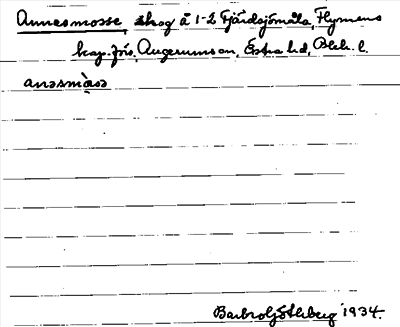 Annesmosse, skog å 1-2 Fjärdsjömåla, Flymens
kap.förs. Augerums sn, Östra hd, Blek. l.
anəsmåsə
Barbro Ljöthberg 1934.